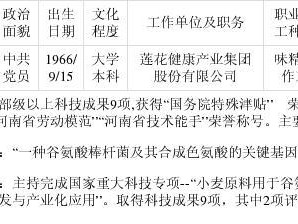 政治 出生 文化 工作单位及职务 职业
面貌 日期 程度 工种
中共 1966/ 大学 莲花健康产业集团 味精
党员 9/15 本科 股份有限公司 作
部级以上科技成果9项,获得“国务院特殊津贴”
河南省劳动模范”“河南省技术能手”荣誉称号。主
：“一种谷氨酸棒杆菌及其合成色氨酸的关键基因
：主持完成国家重大科技专项--“小麦原料用于谷
发与产业化应用”。取得科技成果9项，其中2项评